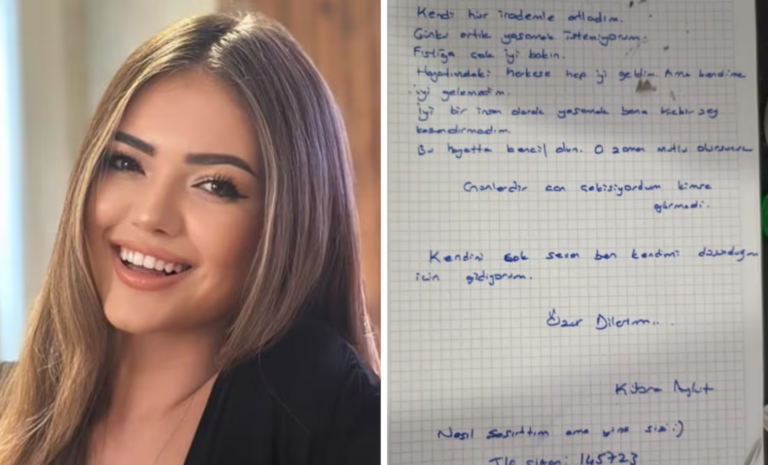 Kendi hür irademle atladım.
Çünkü artık yaşamak istemiyorum.
Fıstığa çok iyi bakın.
Hayatımdaki herkese hep iyi geldim. Ama kendime
iyi gelemedim.
İyi bir insan olarak yaşamak bana hiçbir şey
kazandırmadı.
Bu hayatta bencil olun. O zaman mutlu olursunuz
Günlerdir can çekişiyordum kimse
görmedi.
Kendimi çok seven ben kendimi düşündüğüm
için gidiyorum.
Özür Dilerim..
Kübra Aykut
Nasıl şaşırttım ama yine sizi :)
145723